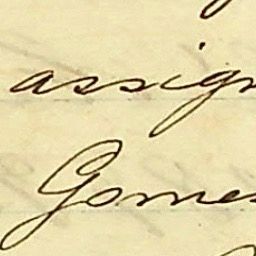 assign
Gomes